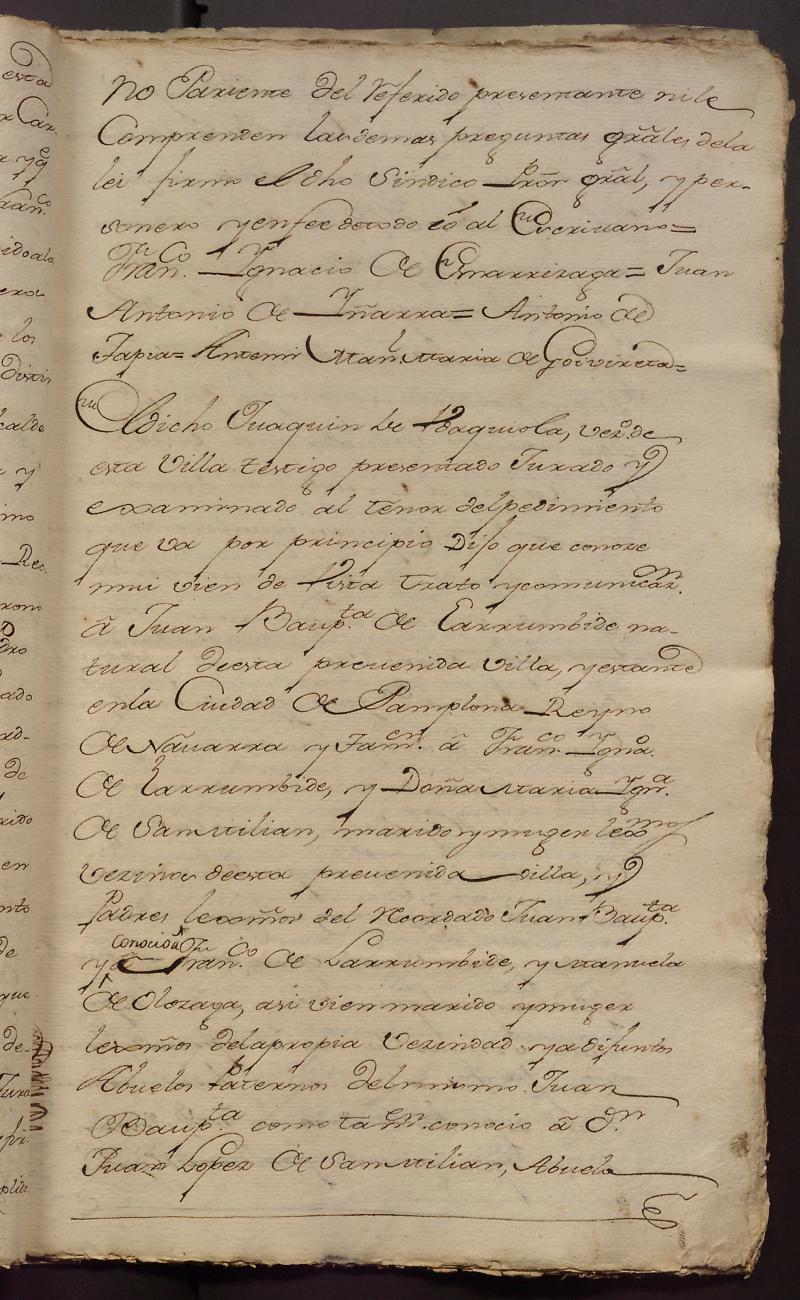 no Pariente del Referido presentante nile
Comprenden las demas preguntas grāles dela
lei firmo el dho Sindico Pror grāl, y per-
sonero yenfee detodo ello Yo el Escrivano=
Franco. Ygnacio de Emarrizaga= Juan
Antonio de Yñarra= Antonio de
Tapia= Antemi Manl. Maria de Goivireta=
El dicho Juaquin de Ybaquiola, vezo. de
esta Villa testigo presentado Jurado y
examinado al tenor delpedimiento
que va por principio Dijo que conoze
mui vien de Vista trato ycomunicaon.
â Juan Baupta. de Larrumbide na-
tural deesta prevenida villa, yestante
enla Ciudad de Pamplona Reyno
de Navarra y Tamen. â Franco Ygno.
de Larrumbide, y Doña Maria Ygna.
de Sanmilian, marido ymuger lexmos
vezinos deesta prevenida villa, y
Padres lexmos del Recordado Juan Baupta.
conocido
y â Franco. de Larrumbide, y Manuela
de Olozaga, asi vien marido ymuger
lexmos delapropia Vezindad ya difuntos
Abuelos Paternos delmismo Juan
Baupta. como tamen. conocio â Dn.
Juan Lopez de Sanmilian, Abuelo